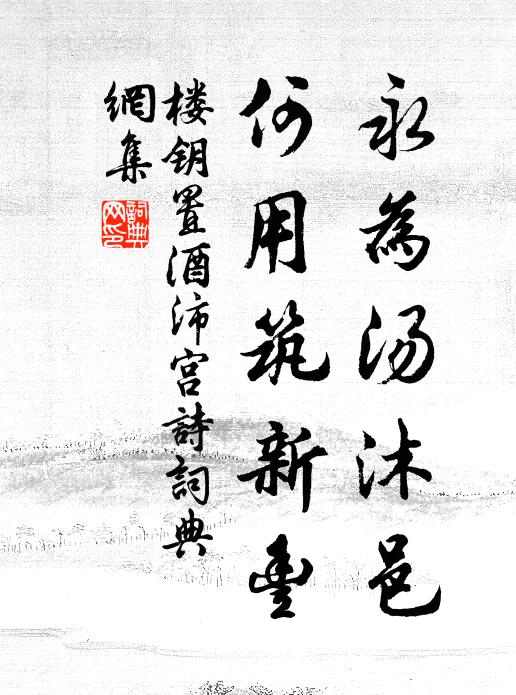 永為汤沐邑
何用筑新豐
楼钥置酒沛宫詩詞典
網集
詞典網印